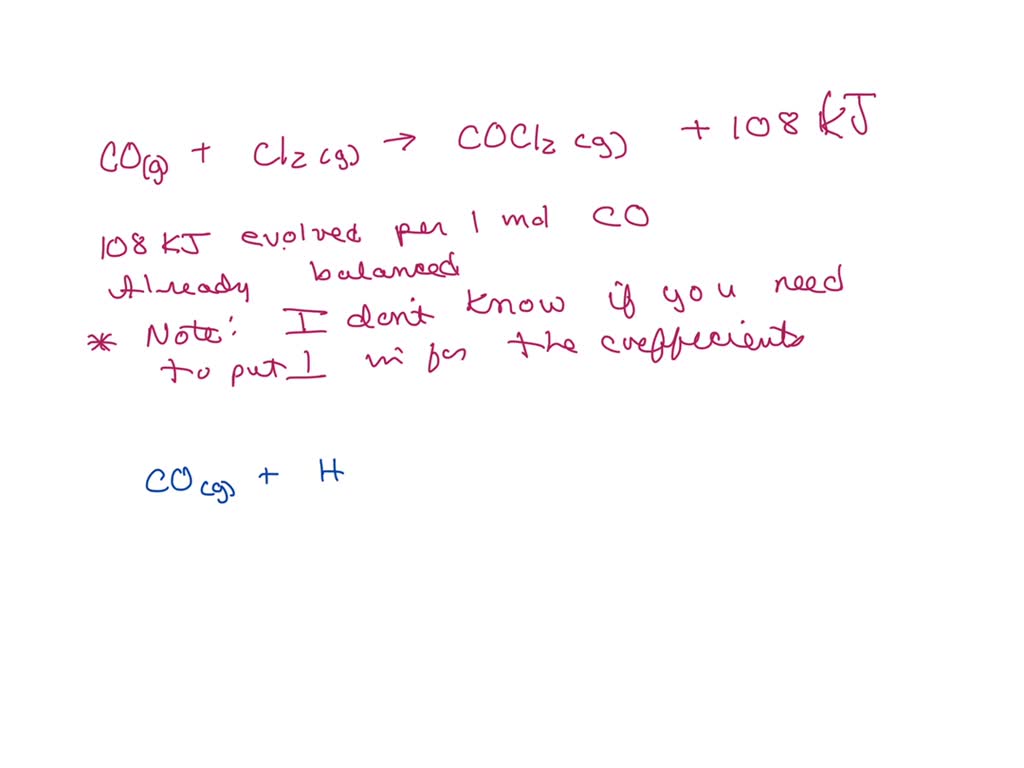 CO(g) + Cl2 (g) → COCl2 (g) + 108 KJ
108 KJ evolved per 1 mol CO
Already balanced
* Note: I don't know if you need
to put 1 in for the coeffecients
CO(g) + H